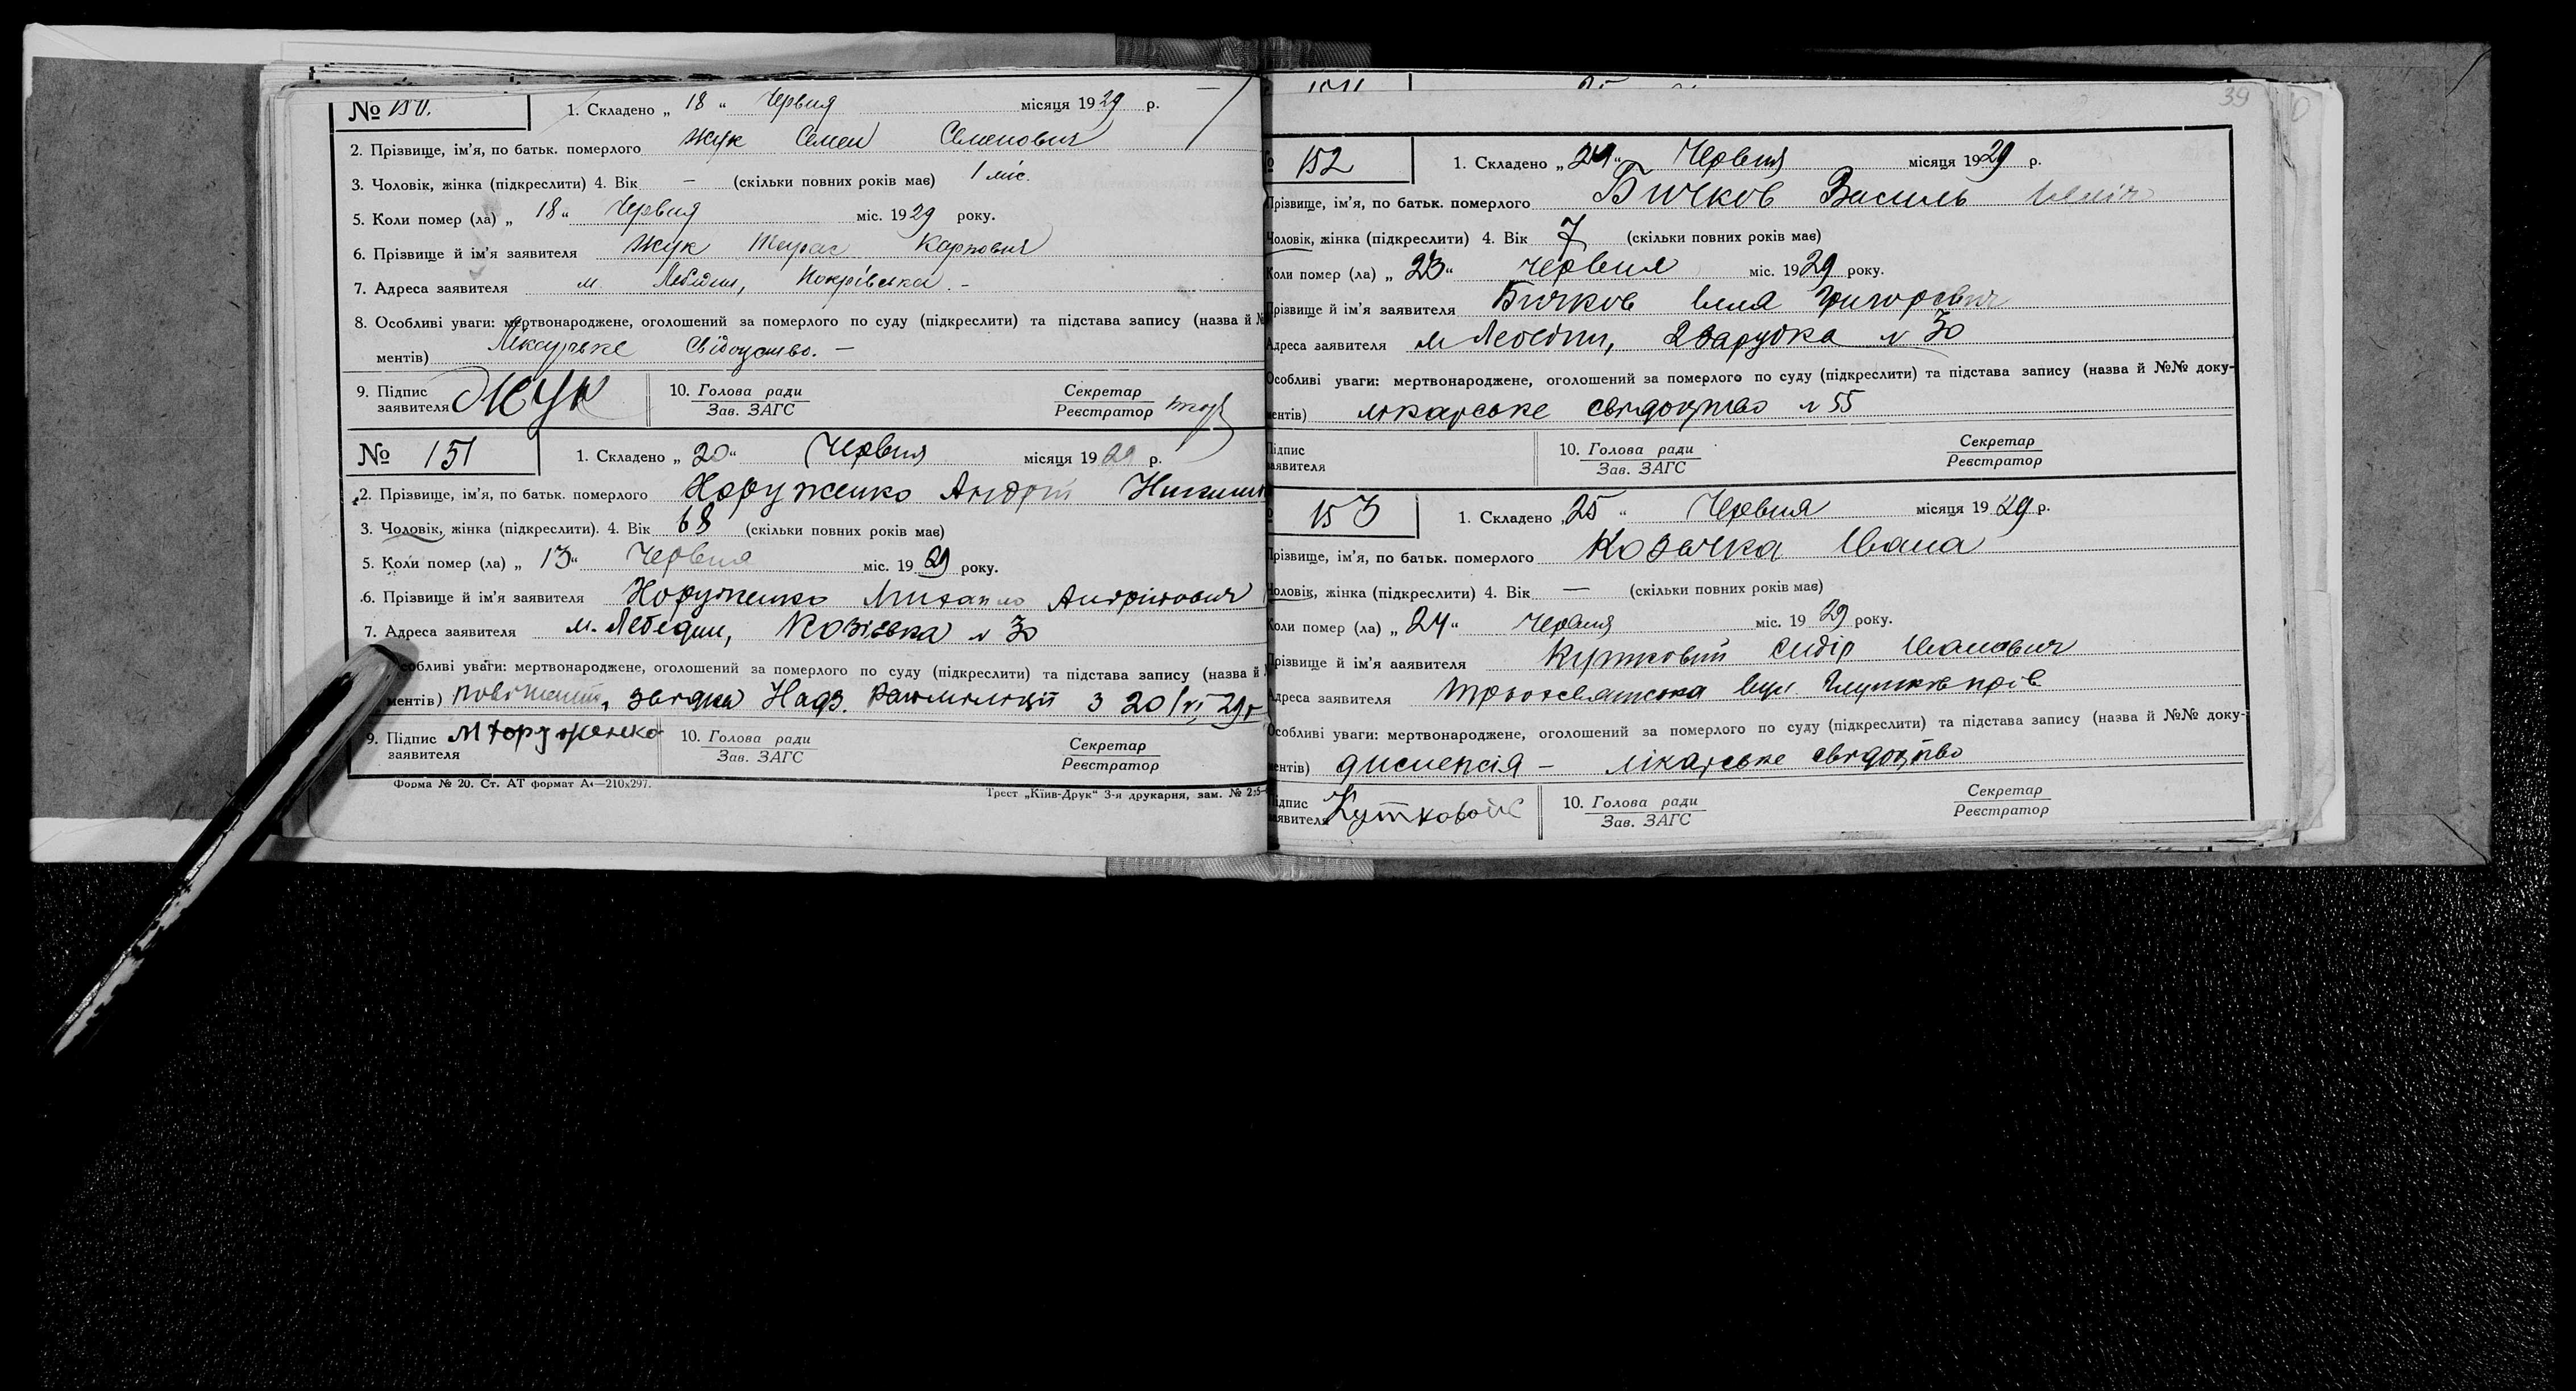 № 150. 1. Складено „ 18 “ Червня місяця 1929 р.
2. Прізвище, ім'я, по батьк. померлого Жук Семен Семенович
3. Чоловік, жінка (підкреслити) 4. Вік — (скільки повних років має) 1 міс.
5. Коли помер (ла) „ 18 “ Червня міс. 1929 року.
6. Прізвище й ім'я заявителя Жук Тарас Карпович
7. Адреса заявителя м. Лебедин, Покрівська. –
8. Особливі уваги: мертвонароджене, оголошений за померлого по суду (підкреслити) та підстава запису (назва й №
ментів) Лікарське свідоцтво. —
9. Підпис заявителя Жук 10. Голова ради Зав. ЗАГС Секретар Реєстратор
№ 151 1. Складено „ 20 “ Червня місяця 1929 р.
2. Прізвище, ім'я, по батьк. померлого Хоруженко Андрій
3. Чоловік, жінка (підкреслити). 4. Вік 68 (скільки повних років має)
5. Коли помер (ла) „ 13 “ Червня міс. 1929 року.
6. Прізвище й ім'я заявителя Хоруженко Михайло Андрійович
7. Адреса заявителя м. Лебедин, Козієвка № 30
собливі уваги: мертвонароджене, оголошений за померлого по суду (підкреслити) та підстава запису (назва й
ментів) 3 20/VI 29 г
9. Підпис заявителя М Хоруженко 10. Голова ради Зав. ЗАГС Секретар Реєстратор
Форма № 20. Ст. АТ формат А4—210х297. Трест „Київ-Друк“ 3-я друкарня, зам. №
39
№ 152 1. Складено „ 24 “ Червня місяця 1929 р.
Прізвище, ім'я, по батьк. померлого Бичков Василь Ілліч
Чоловік, жінка (підкреслити) 4. Вік 7 (скільки повних років має)
Коли помер (ла) „ 23 “ червня міс. 1929 року.
Прізвище й ім'я заявителя Бичков Ілля Григорович
Адреса заявителя м Лебедин, № 30
Особливі уваги: мертвонароджене, оголошений за померлого по суду (підкреслити) та підстава запису (назва й №№ доку-
ментів) лікарське свідоцтво № 55
Підпис заявителя 10. Голова ради Зав. ЗАГС Секретар Реєстратор
153 1. Складено „ 25 “ Червня місяця 1929 р.
Прізвище, ім'я, по батьк. померлого Козачка Івана
Чоловік, жінка (підкреслити) 4. Вік — (скільки повних років має)
Коли помер (ла) „ 24 “ Червня міс. 1929 року.
Прізвище й ім'я ааявителя Кутковий Сидір Іванович
Адреса заявителя Трьохсвятська вул.
Особливі уваги: мертвонароджене, оголошений за померлого по суду (підкреслити) та підстава запису (назва й №№ доку-
ментів) диспепсія – лікарське свідоцтво
Підпис заявителя Кутковой 10. Голова ради Зав. ЗАГС Секретар Реєстратор